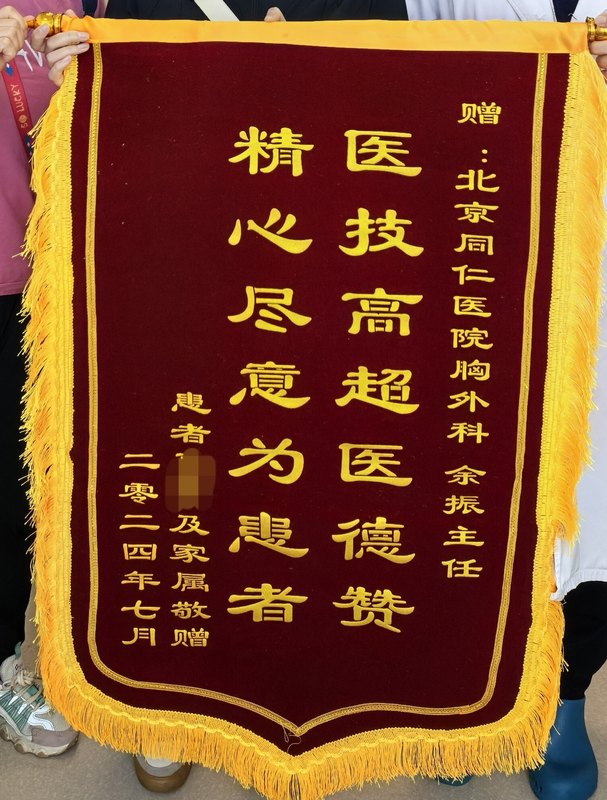 赠：北京同仁医院胸外科 余振主任
医技高超医德赞
精心尽意为患者
患者 及家属敬赠
二零二四年七月
LUCKY